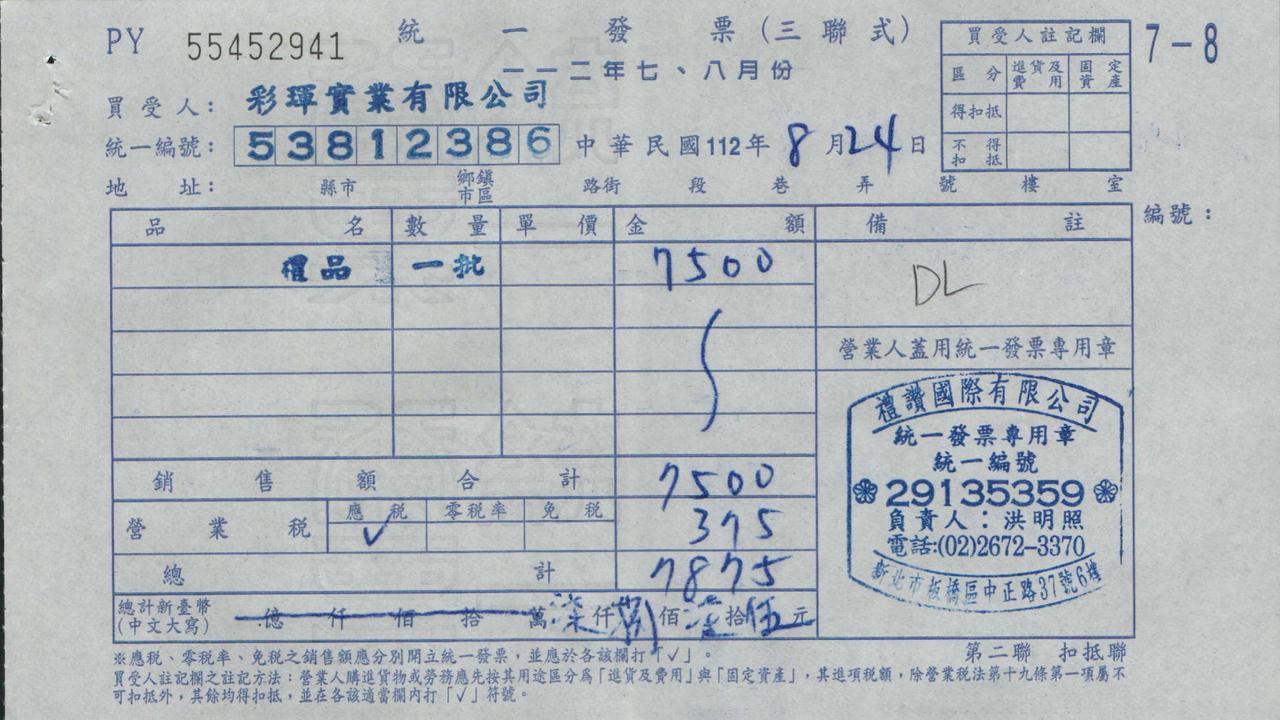 PY 55452941 統一發票(三聯式)
一一二年七、八月份
7-8
買受人註記欄
區分 進貨及費用 固定資產
得扣抵
不得扣抵
買受人: 彩琿實業有限公司
統一編號: 53812386 中華民國112年8月24日
地址: 縣市 鄉鎮市區 路街 段 巷 弄 號 樓 室
編號:
品名 數量 單價 金額 備註
禮品 一批 7500 DL
營業人蓋用統一發票專用章
銷售額合計 7500
營業稅 應稅 ✓ 零稅率 免稅 375
總計 7875
總計新臺幣(中文大寫) 億仟佰拾萬柒仟捌佰柒拾伍元
禮讚國際有限公司
統一發票專用章
統一編號
29135359
負責人:洪明照
電話:(02)2672-3370
新北市板橋區中正路37號6樓
※應稅、零稅率、免稅之銷售額應分別開立統一發票,並應於各該欄打「✓」。
第二聯 扣抵聯
買受人註記欄之註記方法:營業人購進貨物或勞務應先按其用途區分為「進貨及費用」與「固定資產」,其進項稅額,除營業稅法第十九條第一項屬不
可扣抵外,其餘均得扣抵,並在各該適當欄內打「✓」符號。